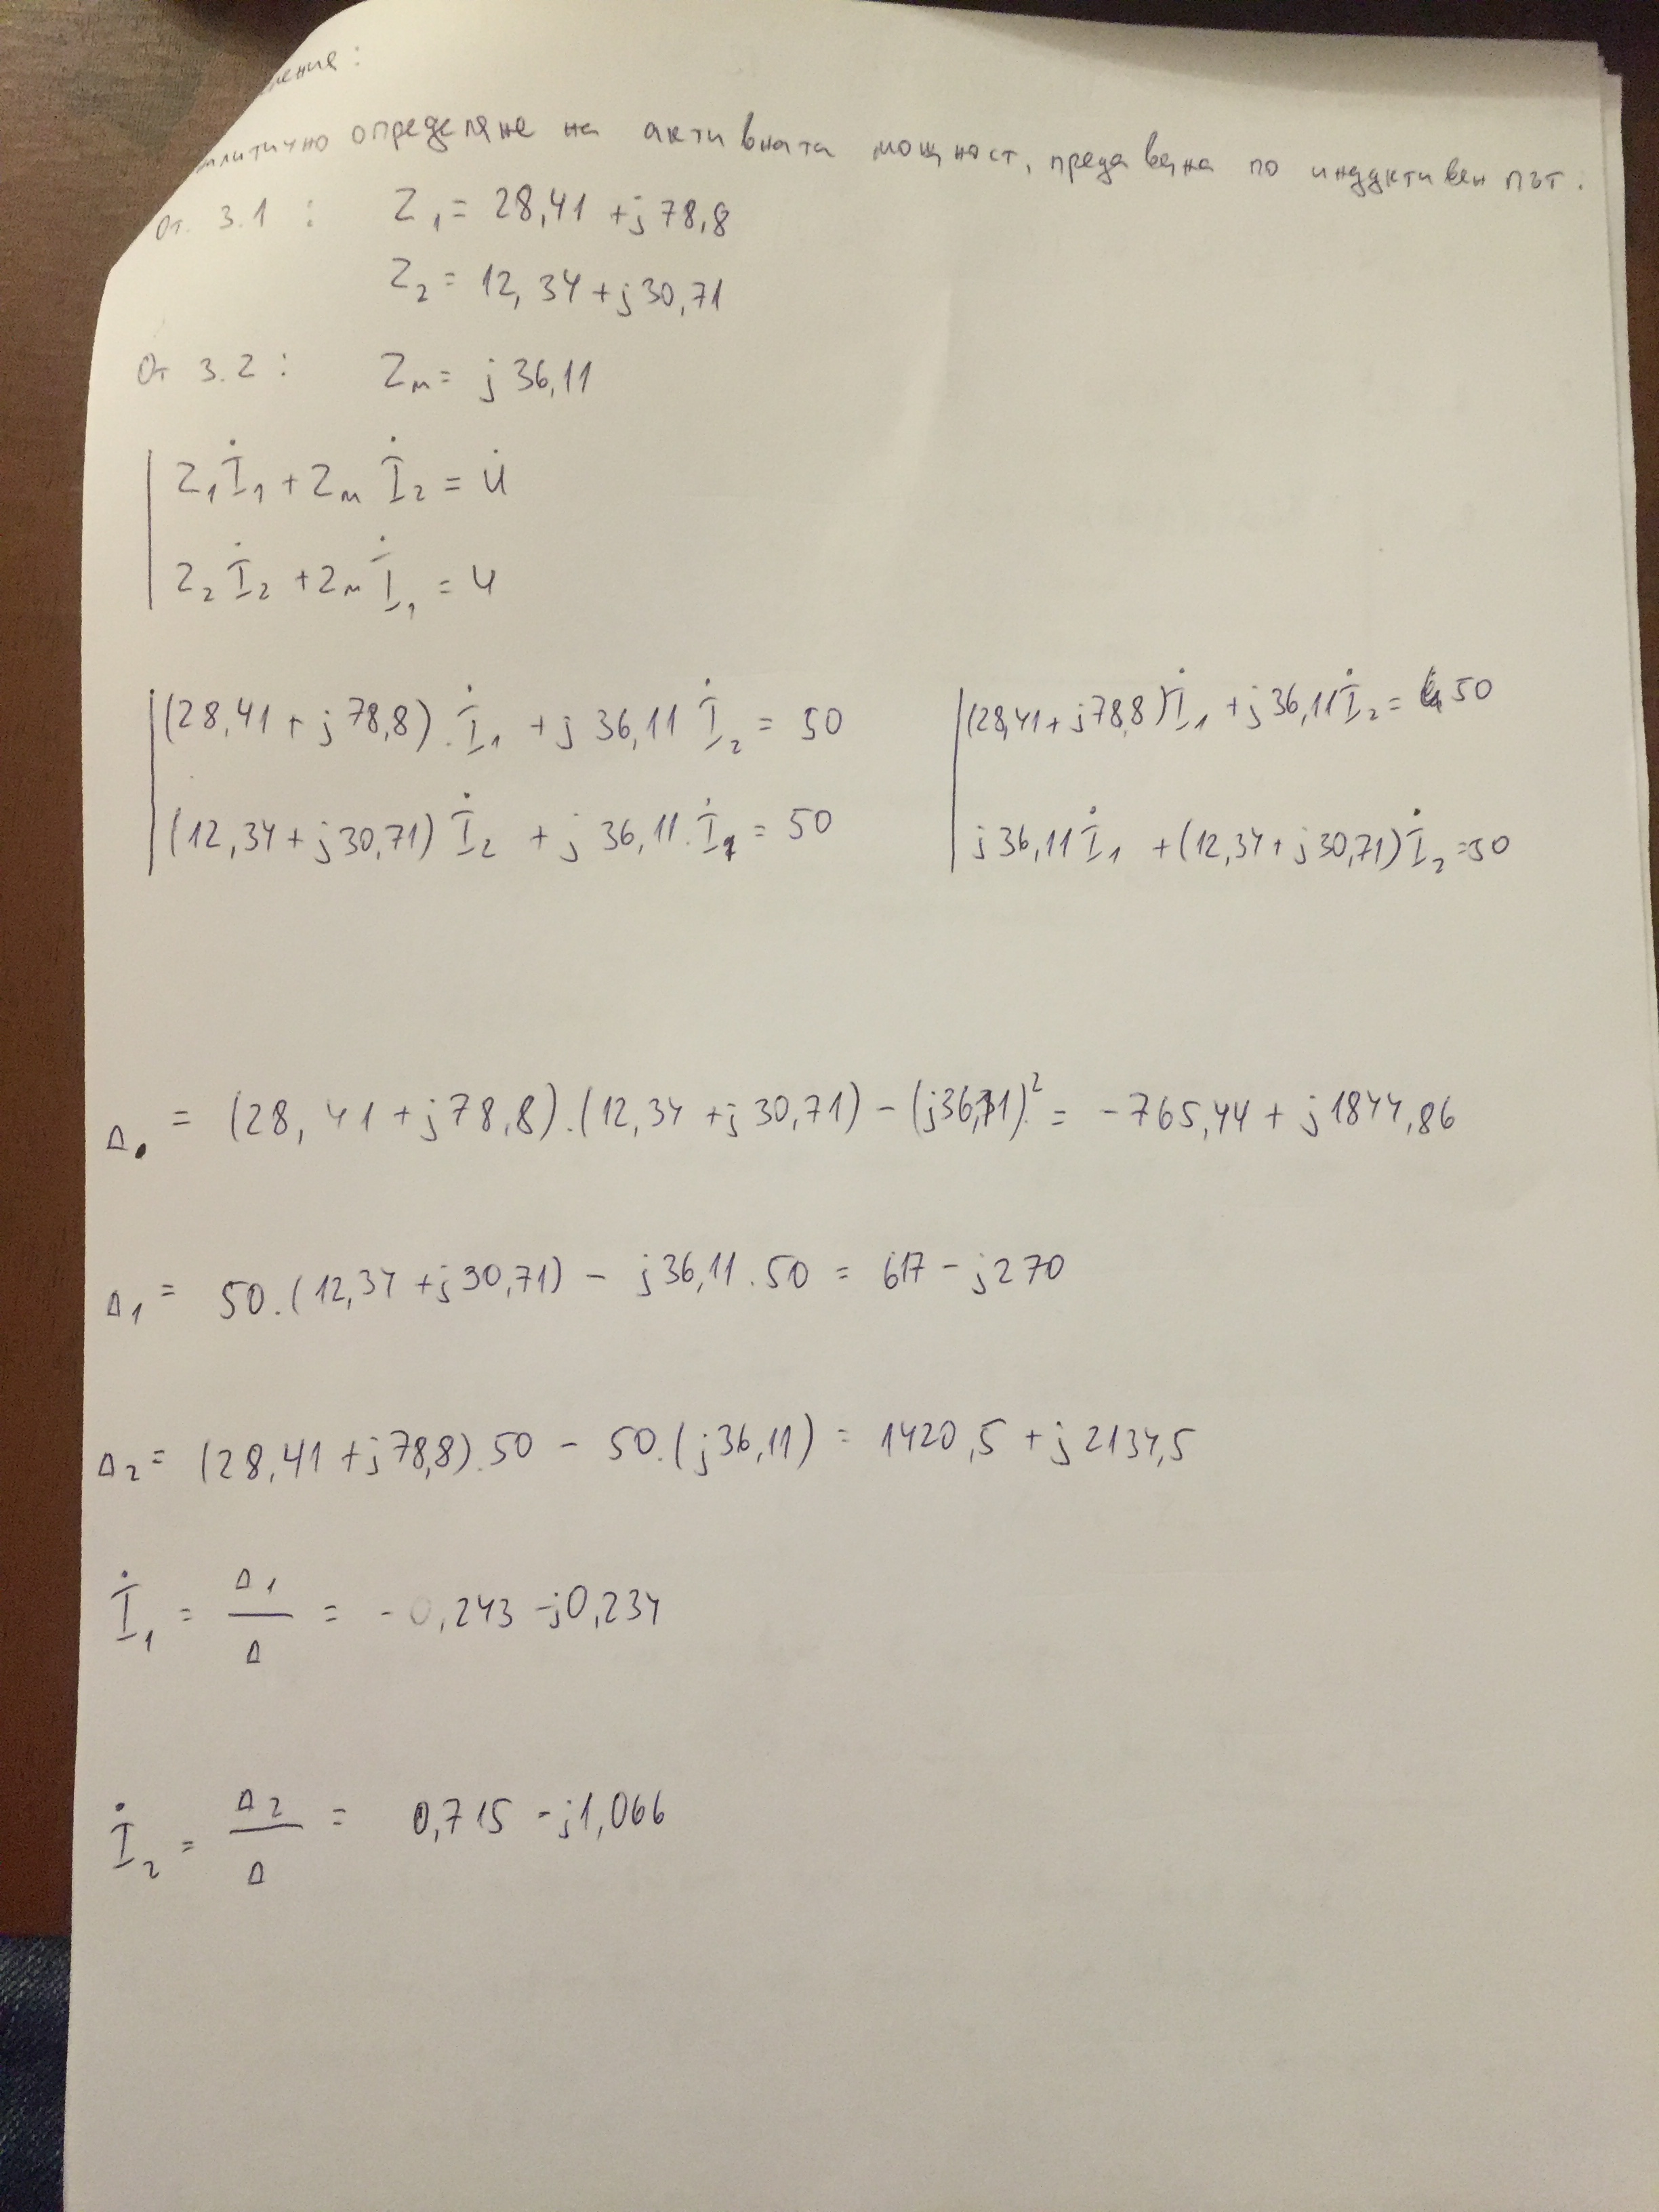 ения:
литично определяне на активната мощност, предавана по индуктивен път.
От. 3.1 : Z₁ = 28,41 + j78,8
Z₂ = 12,34 + j30,71
От 3.2 : Zм = j 36,11
Z₁İ₁ + Zм İ₂ = U̇
Z₂İ₂ + Zм İ₁ = U
(28,41 + j78,8).İ₁ + j 36,11 İ₂ = 50
(12,34 + j30,71) İ₂ + j 36,11.İ₁ = 50
(28,41 + j78,8)İ₁ + j36,11İ₂ = 50
j36,11İ₁ + (12,34 + j30,71)İ₂ = 50
Δ = (28,41 + j78,8).(12,34 + j30,71) - (j36,11)² = -765,44 + j1844,86
Δ₁ = 50.(12,34 + j30,71) - j36,11.50 = 617 - j270
Δ₂ = (28,41 + j78,8).50 - 50.(j36,11) = 1420,5 + j2134,5
İ₁ = Δ₁ / Δ = -0,243 - j0,234
İ₂ = Δ₂ / Δ = 0,715 - j1,066